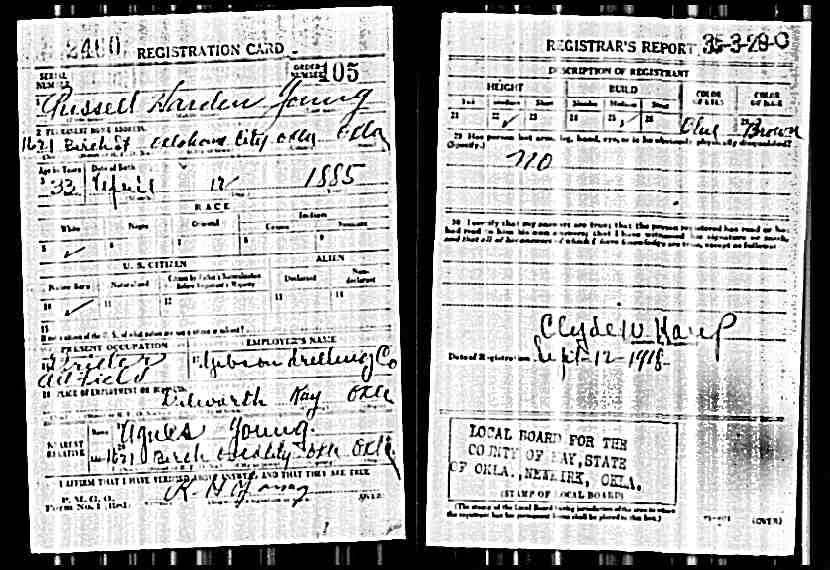 2400 REGISTRATION CARD
SERIAL NUMBER ORDER NUMBER 105
1 Russell Harden Young
2 PERMANENT HOME ADDRESS
1621 Birch St Oklahoma City Okla
Age in Years Date of Birth
33 April 12 1885
RACE
White Negro Oriental Indian
Citizen Noncitizen
5 ✓ 6 7 8 9
U. S. CITIZEN ALIEN
Native Born Naturalized Citizen by Father's Naturalization Before Registrant's Majority Declared Non-declarant
10 ✓ 11 12 13 14
15
PRESENT OCCUPATION EMPLOYER'S NAME
Driller Oil field 17 Gibson Drilling Co
18 PLACE OF EMPLOYMENT OR BUSINESS
Dilworth Kay Okla
NEAREST RELATIVE Name Agnes Young
1621 Birch Okla
I AFFIRM THAT I HAVE VERIFIED ABOVE ANSWERS AND THAT THEY ARE TRUE
P. M. G. O.
Form No. 1 (Red) R H Young (OVER)
REGISTRAR'S REPORT 35-3-28-C
DESCRIPTION OF REGISTRANT
HEIGHT BUILD COLOR OF EYES COLOR OF HAIR
Tall Medium Short Slender Medium Stout
21 22 ✓ 23 24 25 ✓ 26 Blue Brown
29 Has person lost arm, leg, hand, eye, or is he obviously physically disqualified?
(Specify.)
no
30 I certify that my answers are true; that the person registered has read or has
had read to him his own answers; that I have witnessed his signature or mark,
and that all of his answers of which I have knowledge are true, except as follows:
Clyde W
Date of Registration Sept-12-1918
LOCAL BOARD FOR THE
COUNTY OF KAY, STATE
OF OKLA., NEWKIRK, OKLA.
(STAMP OF LOCAL BOARD)
(The stamp of the Local Board having jurisdiction of the area in which
the registrant has his permanent home shall be placed in this box.)
(OVER)